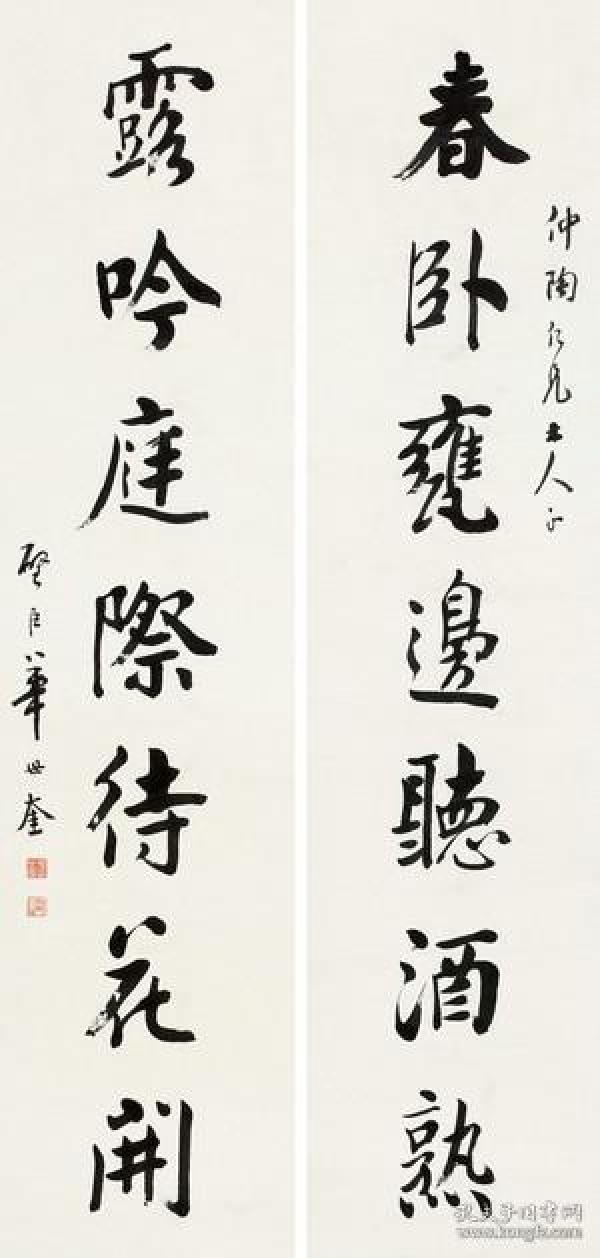 春卧甕邊聽酒熟
仲陶仁兄大人正
露吟庭際待花開
璧臣華世奎
孔夫子旧书网
www.kongfz.com